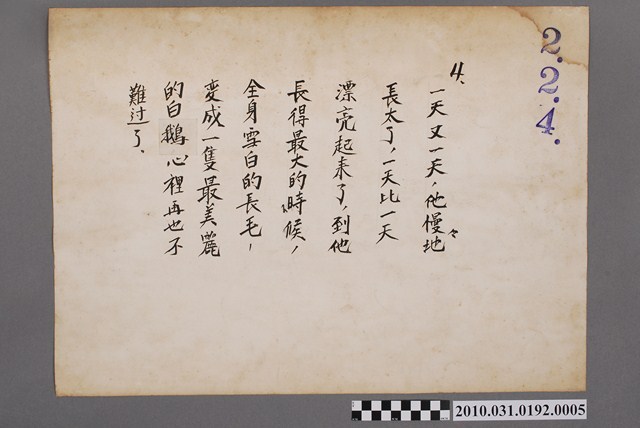 2.2.4.
4、
一天又一天，他慢々地
長大了，一天比一天
漂亮起来了，到他
長得最大的時候，
全身雪白的長毛，
変成一隻最美麗
的白鵝心裡再也不
難过了、
2010.031.0192.0005